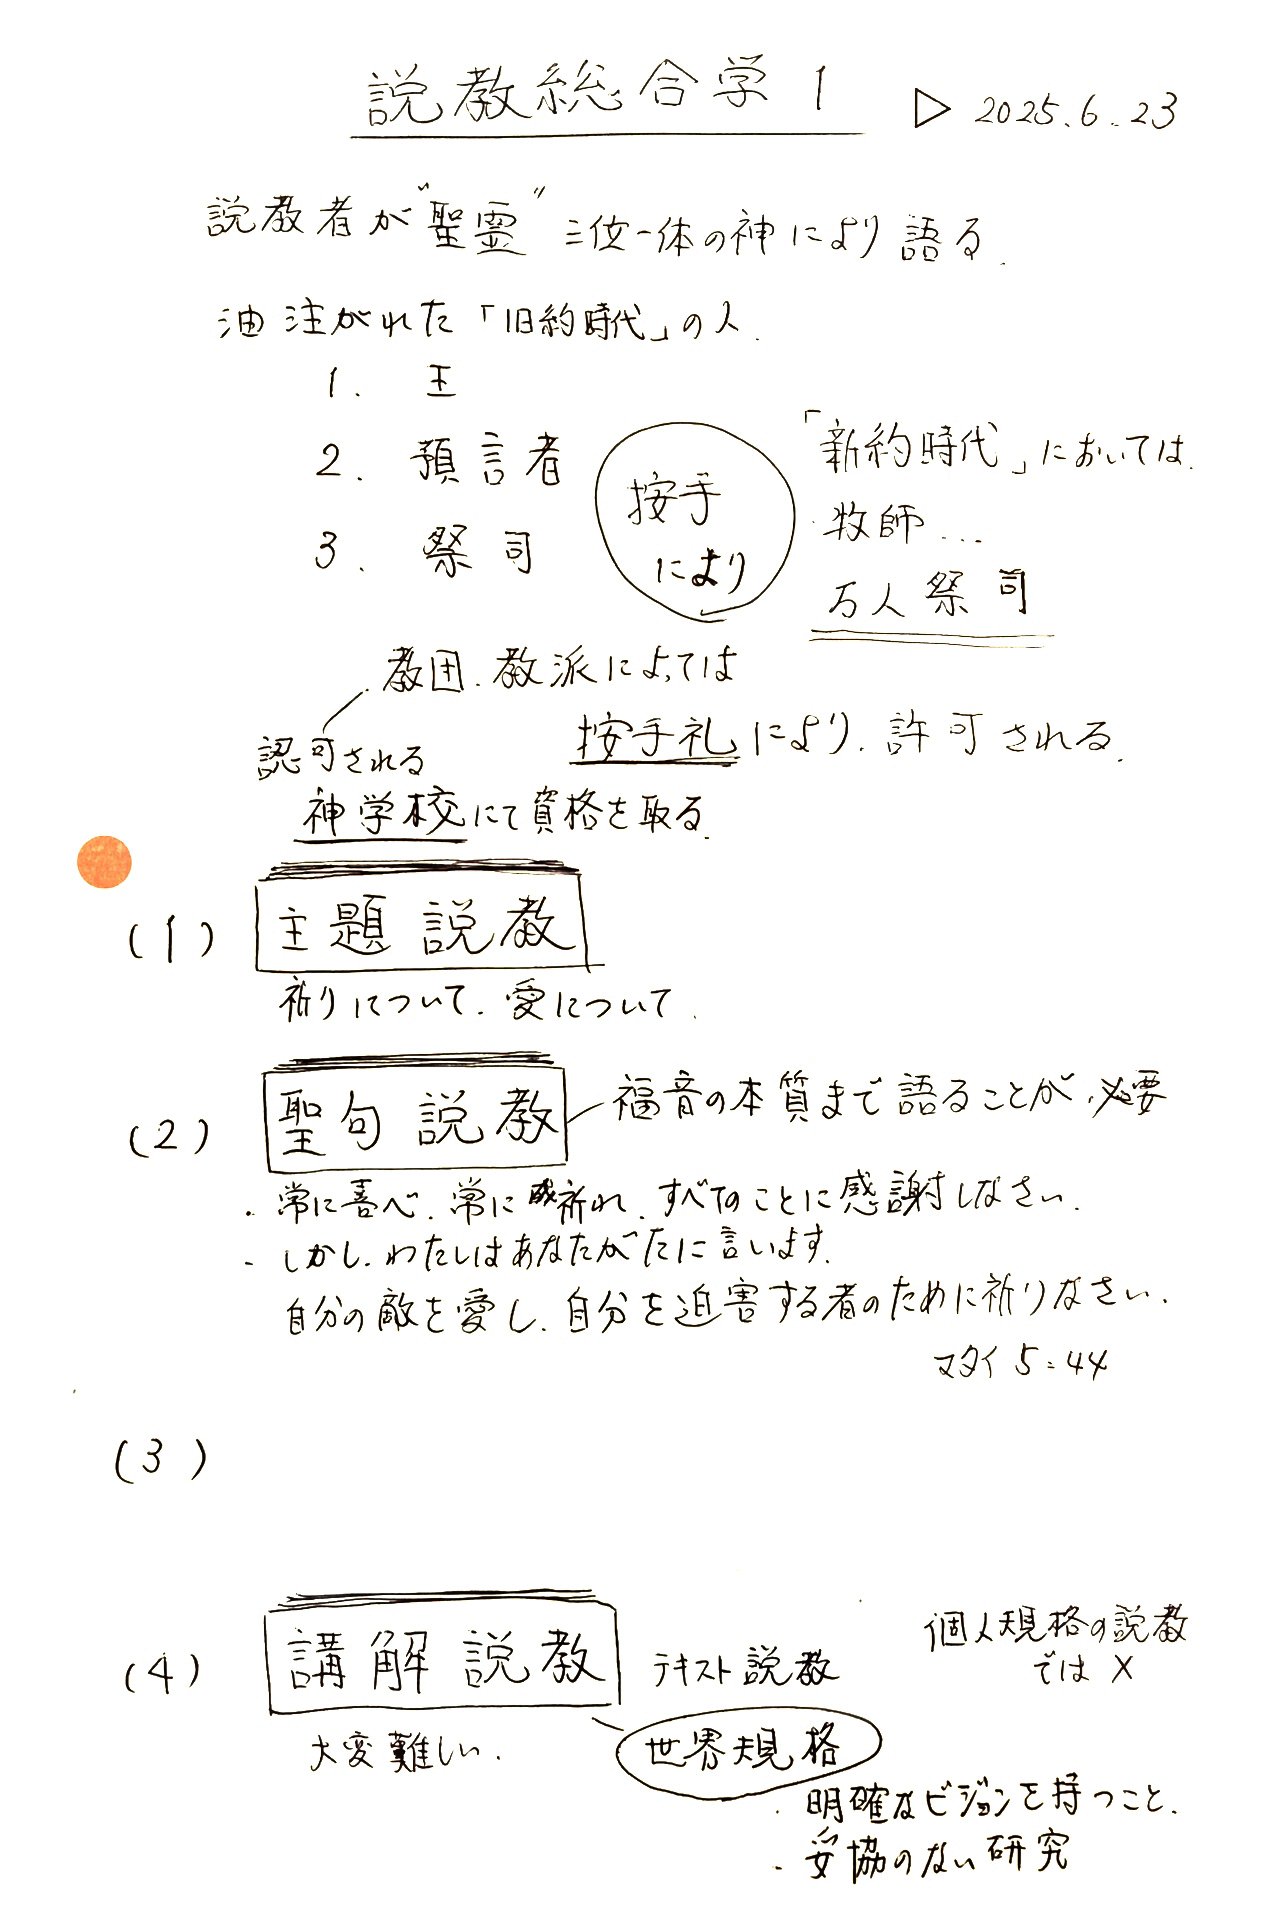 説教総合学 1 ▷ 2025.6.23
説教者が"聖霊"三位一体の神により語る.
油注がれた「旧約時代」の人.
1. 王
2. 預言者
3. 祭司
按手
により
「新約時代」においては.
牧師...
万人祭司
教団.教派によっては
認可される
按手礼により.許可される.
神学校にて資格を取る.
(1) 主題説教
祈りについて.愛について.
(2) 聖句説教
福音の本質まで語ることが必要
・常に喜べ.常に祈れ.すべてのことに感謝しなさい.
・しかし.わたしはあなたがたに言います.
自分の敵を愛し.自分を迫害する者のために祈りなさい.
マタイ5:44
(3)
(4) 講解説教 テキスト説教
個人規格の説教
ではX
大変難しい.
世界規格
・明確なビジョンを持つこと.
・妥協のない研究